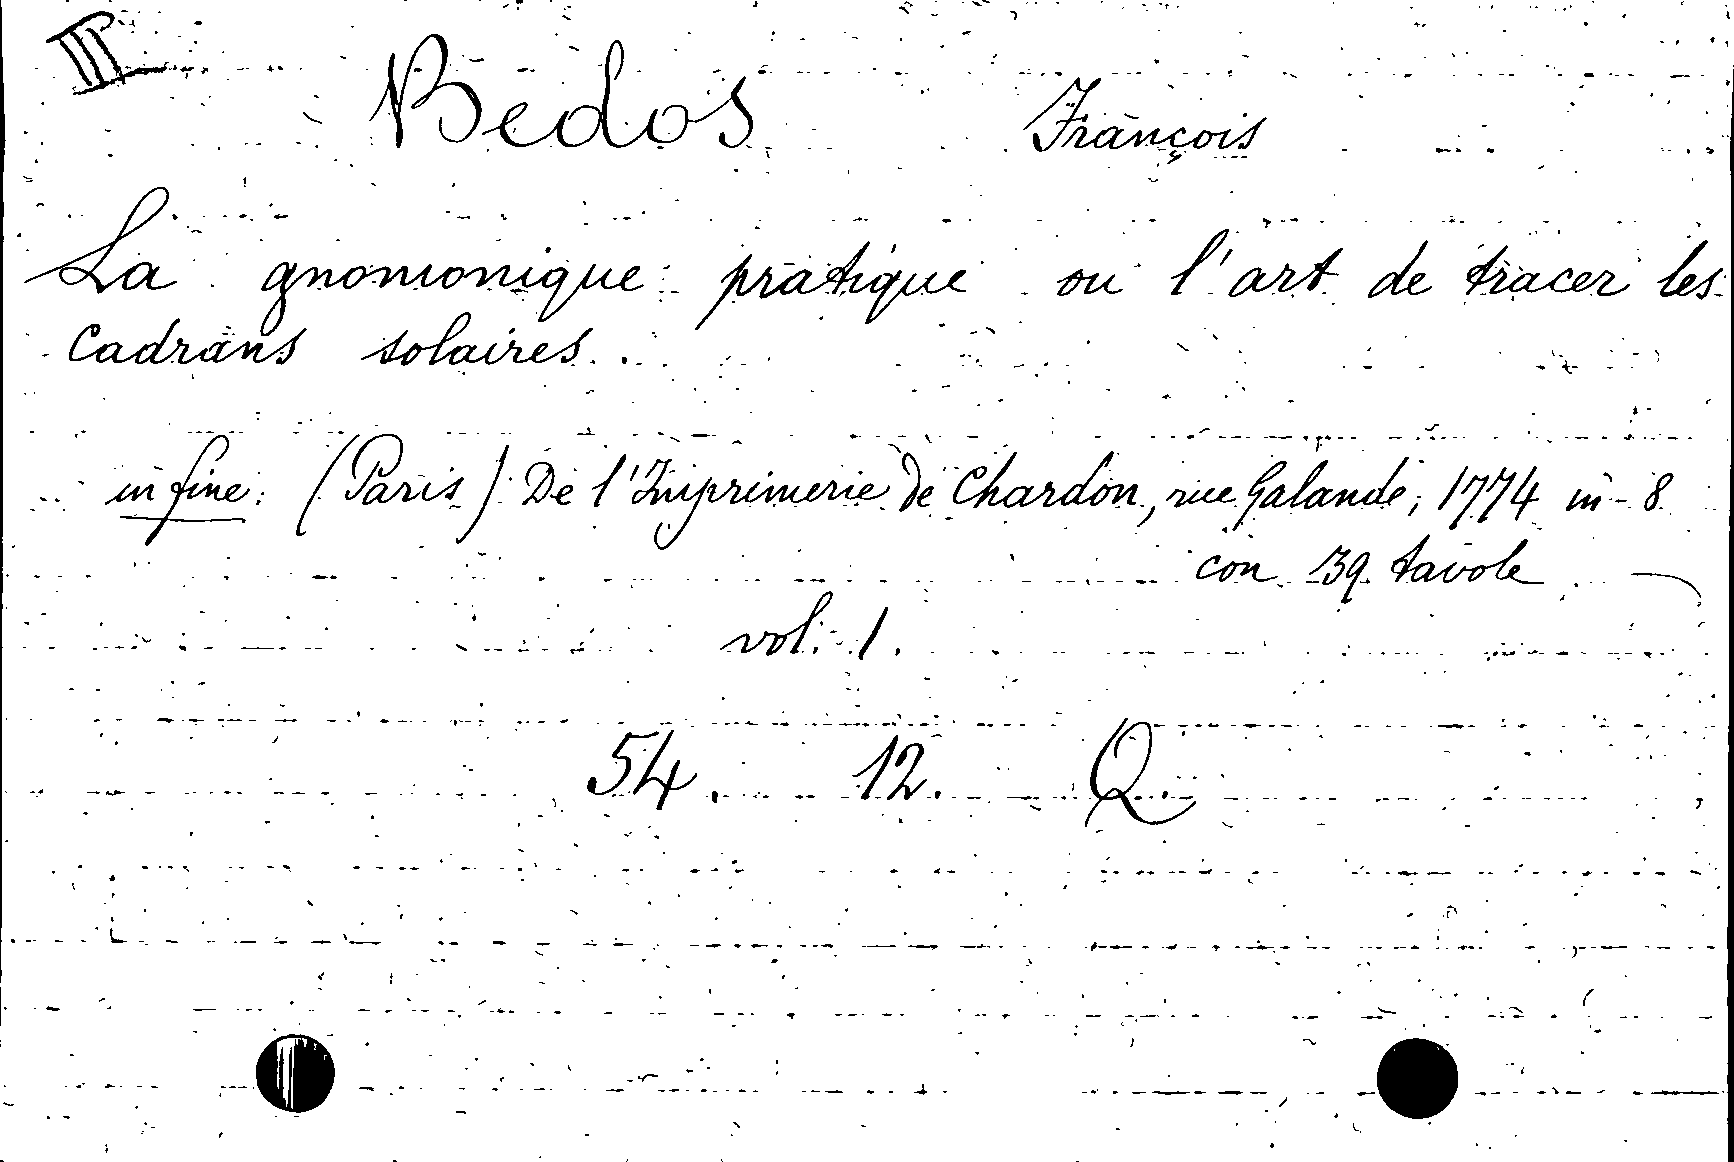 III
Bedos François
La gnomonique pratique ou l'art de tracer les
cadrans solaires.
in fine: (Paris) De l'Imprimerie de Chardon, rue Galande, 1774 in-8
con 39 tavole
vol. 1.
54. 12. Q.